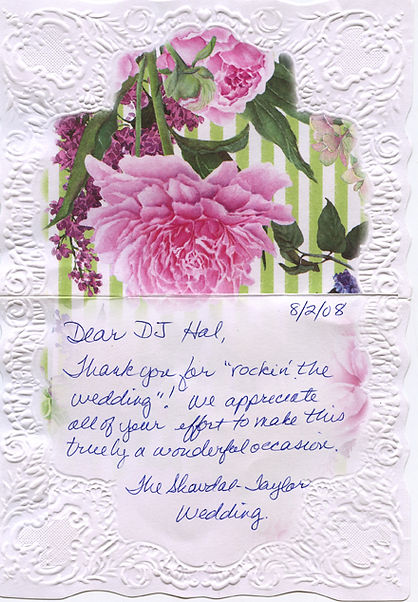 8/2/08
Dear DJ Hal,
Thank you for "rockin' the
wedding"! We appreciate
all of your effort to make this
truely a wonderful occasion.
The Taylor
Wedding.